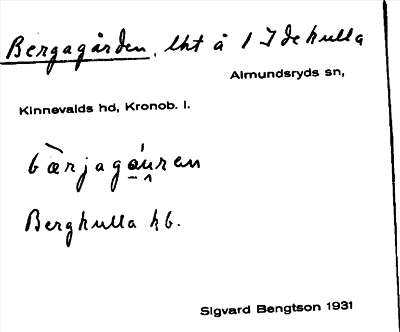 Bergagården, lht å 1 Idekulla
Almundsryds sn,
Kinnevalds hd, Kronob. l.
bæ̀rjagáuren
Bergkulla hb.
Sigvard Bengtson 1931